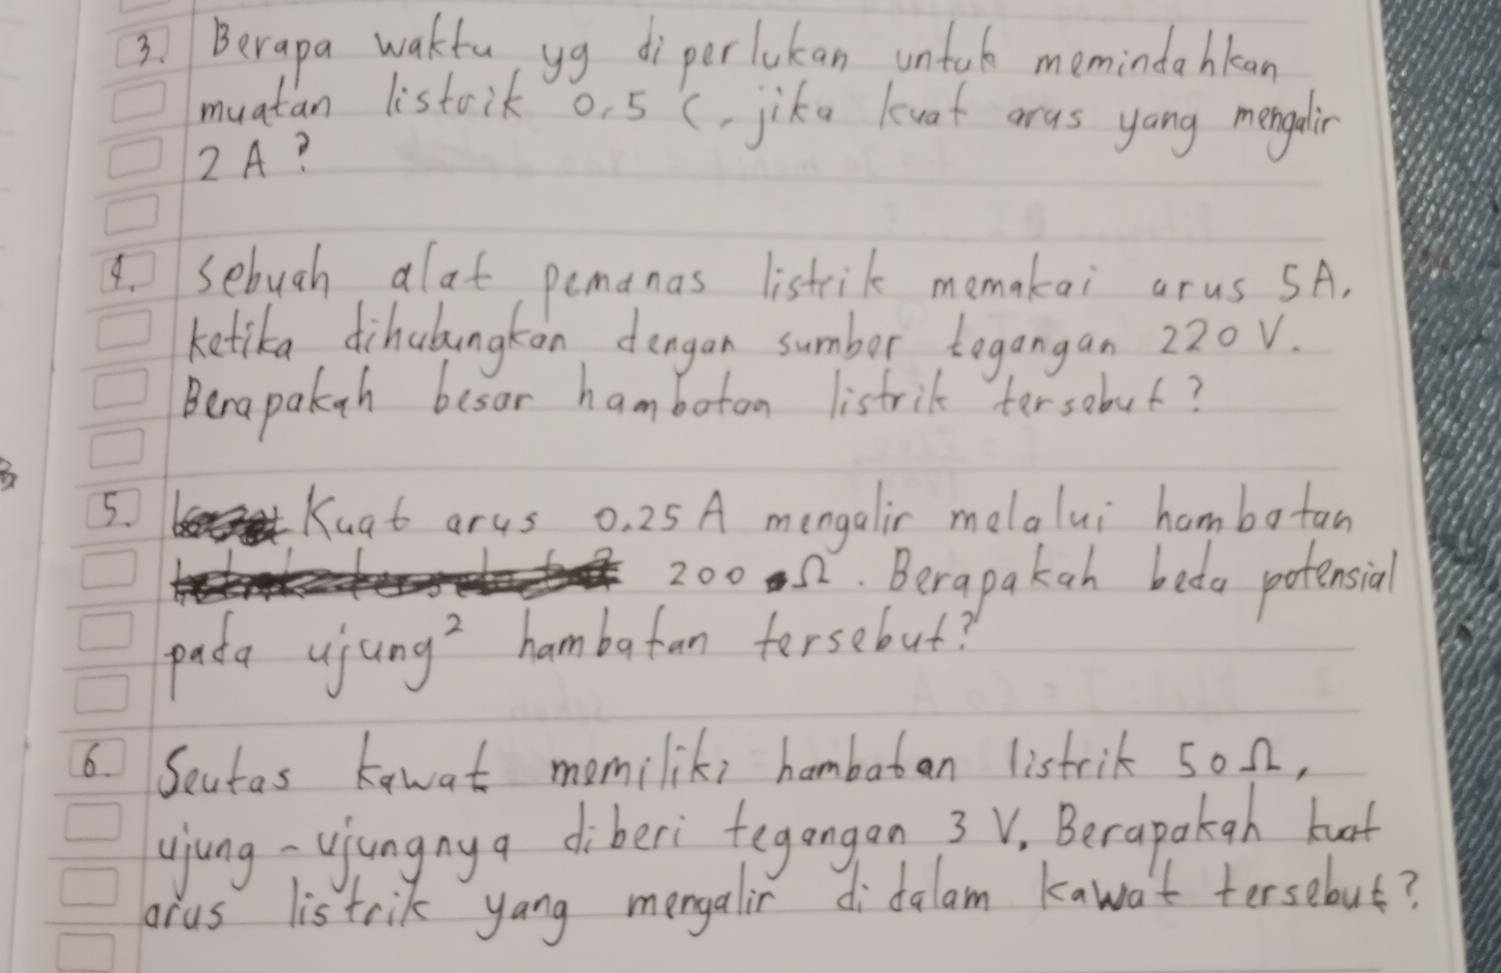 3. Berapa waktu yg diperlukan untuk memindahkan
muatan listrik 0,5 C, jika kuat arus yang mengalir
2 A?
4. Sebuah alat pemanas listrik memakai arus 5A,
ketika dihubungkan dengan sumber tegangan 220 V.
Berapakah besar hambatan listrik tersebut?
5. Kuat arus 0.25 A mengalir melalui hambatan
200 Ω. Berapakah beda potensial
pada ujung² hambatan tersebut?
6. Seutas kawat memiliki hambatan listrik 50Ω,
ujung-ujungnya diberi tegangan 3 V. Berapakah kuat
arus listrik yang mengalir didalam kawat tersebut?